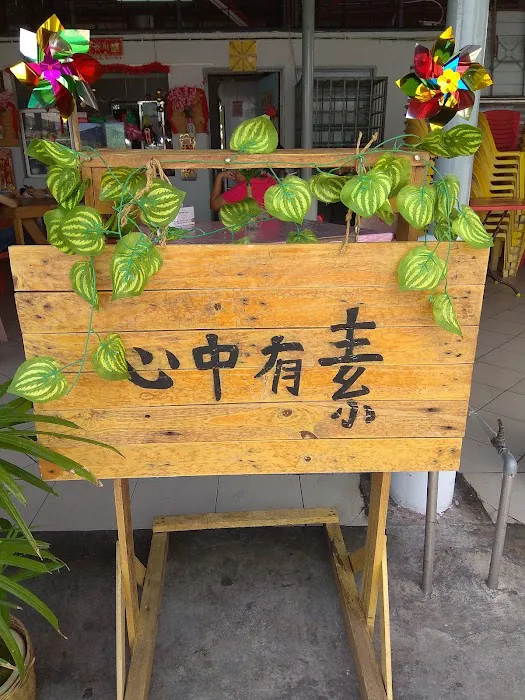 心中有素